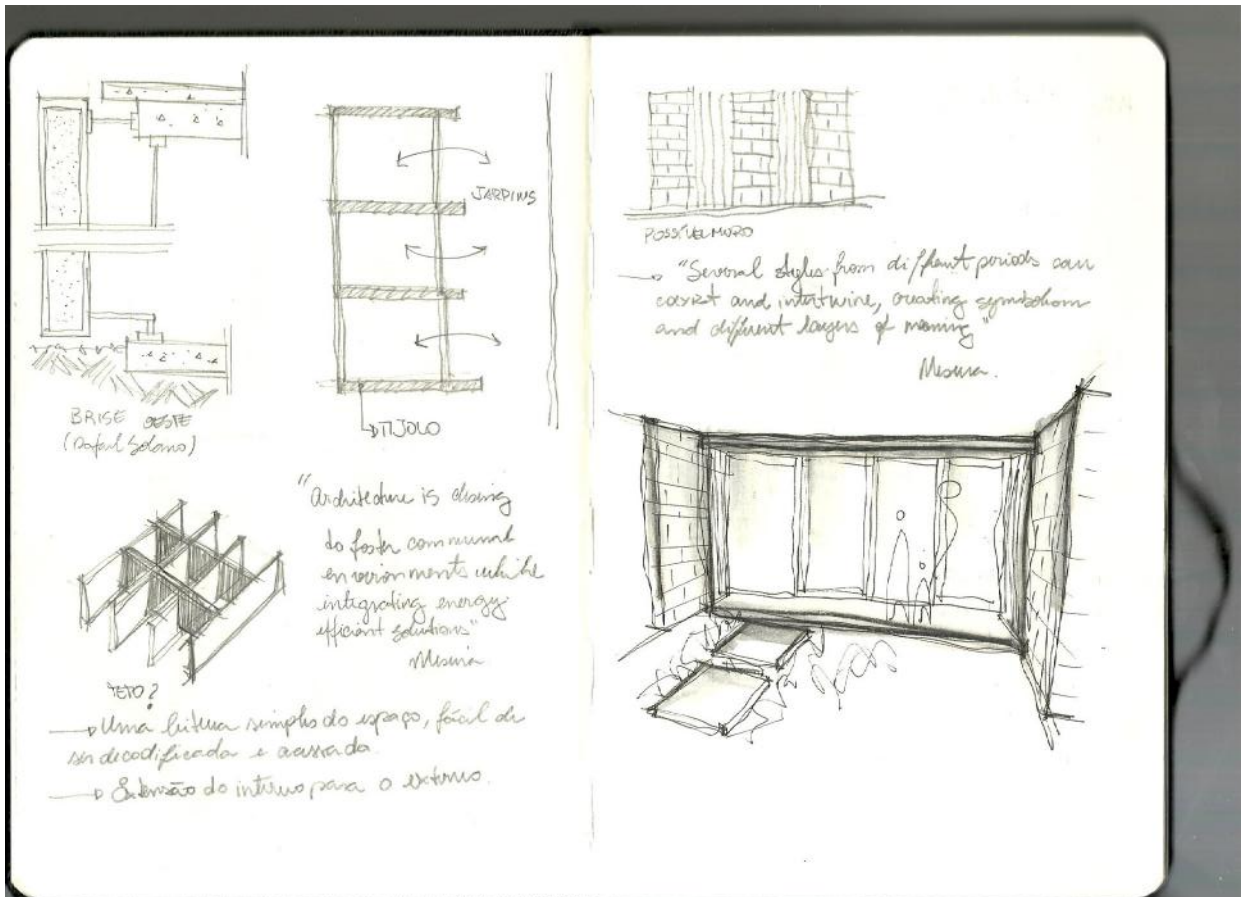 BRISE OESTE
(Rafael Solano)
JARDINS
TIJOLO
"Architecture is
to foster communal
environments while
integrating energy
efficient solutions"
Mesura
TETO?
Uma leitura simples do espaço, fácil de
ser decodificada e acessada.
Extensão do interno para o externo.
POSSÍVEL MURO
"Several styles from different periods can
coexist and intertwine, creating symbolism
and different layers of meaning"
Mesura.